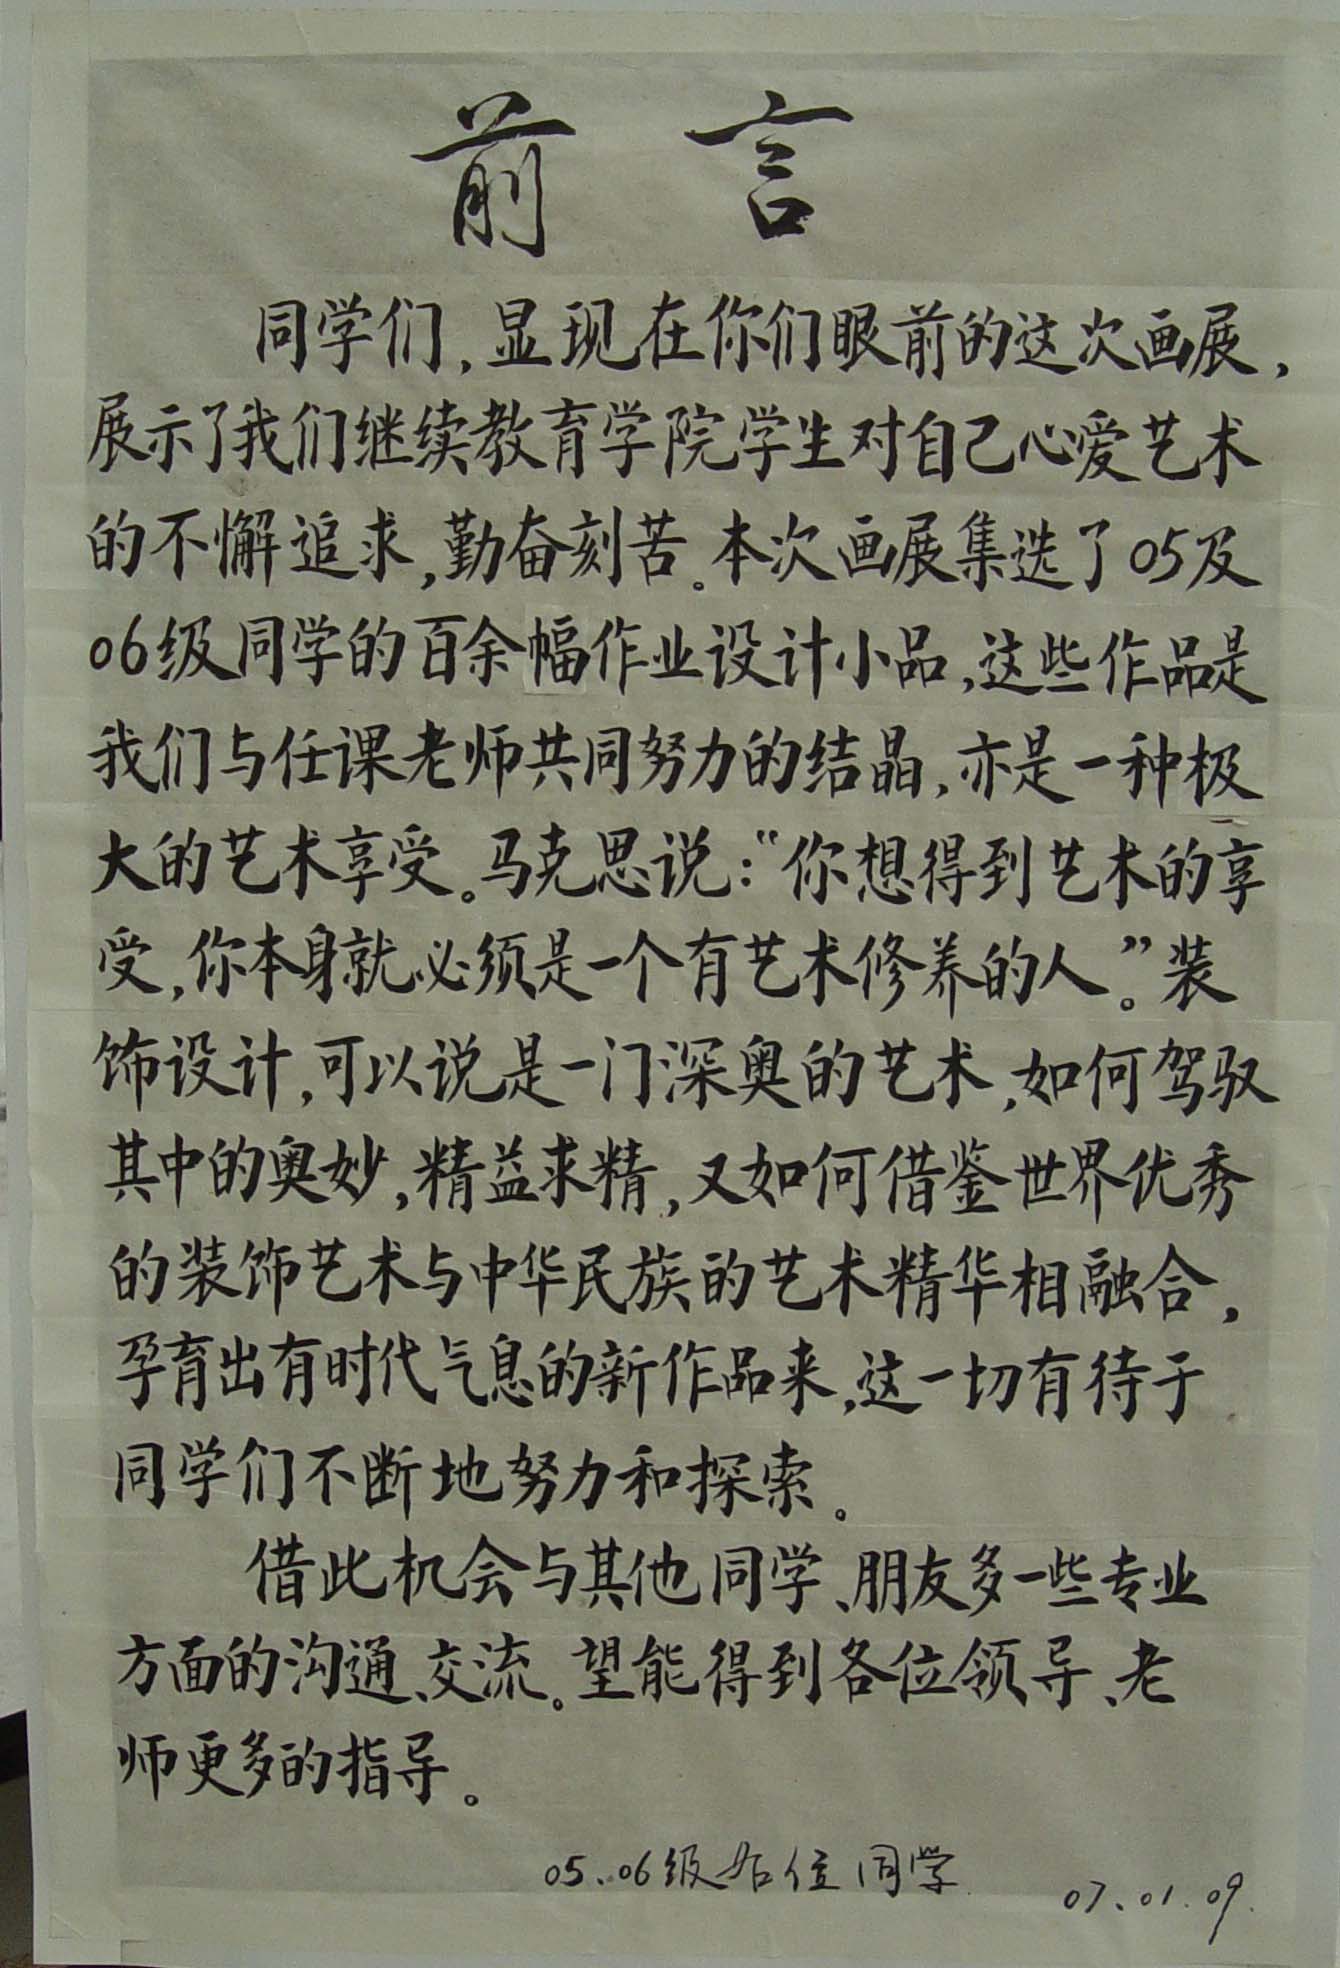 前言
同学们,显现在你们眼前的这次画展,
展示了我们继续教育学院学生对自己心爱艺术
的不懈追求,勤奋刻苦。本次画展集选了05及
06级同学的百余幅作业设计小品,这些作品是
我们与任课老师共同努力的结晶,亦是一种极
大的艺术享受。马克思说:“你想得到艺术的享
受,你本身就必须是一个有艺术修养的人。”装
饰设计,可以说是一门深奥的艺术,如何驾驭
其中的奥妙,精益求精,又如何借鉴世界优秀
的装饰艺术与中华民族的艺术精华相融合,
孕育出有时代气息的新作品来,这一切有待于
同学们不断地努力和探索。
借此机会与其他同学、朋友多一些专业
方面的沟通、交流。望能得到各位领导、老
师更多的指导。
05、06级各位同学
07.01.09.